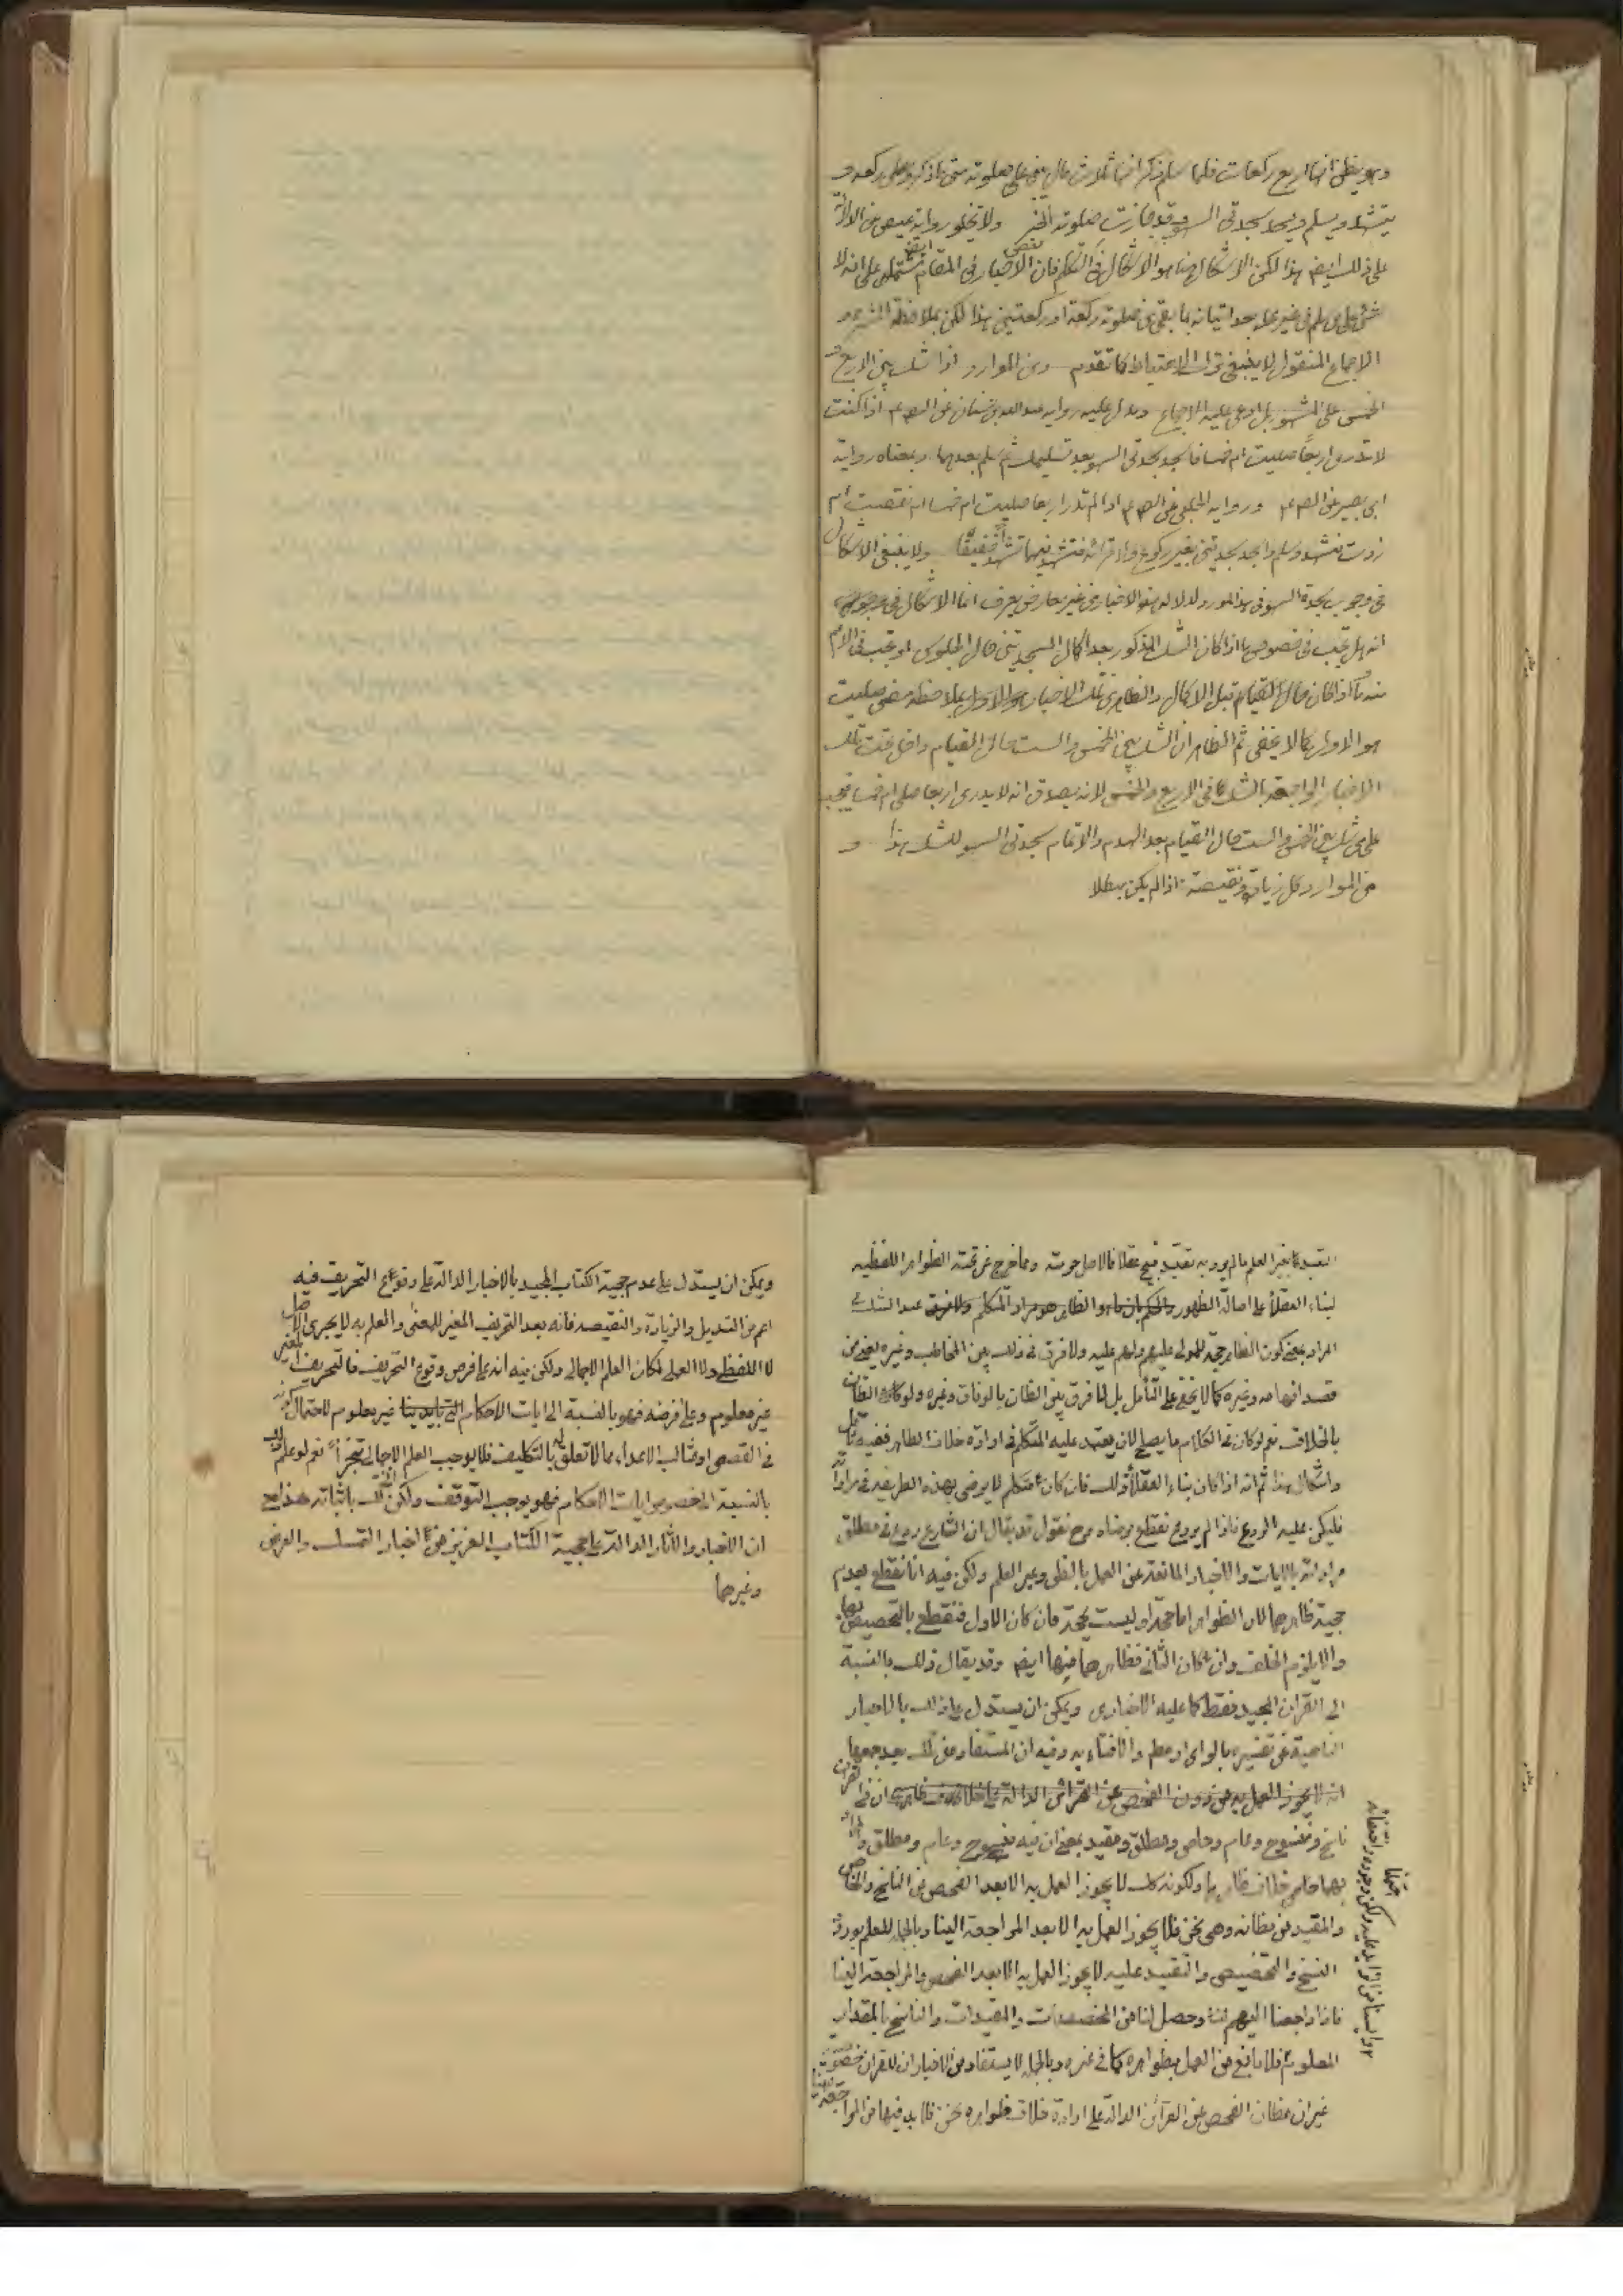 وهو يظن انها اربع ركعات فلما سلم ذكر انها ثلاث قال يبنى على صلوته متى ما ذكر ويصلى ركعة و
يتشهد ويسلم ويسجد سجدتى السهو وقد جازت صلوته الخبر ولا تخلو رواية عيص من الدلالة
على ذلك ايضا هذا لكن الاشكال هنا هو الاشكال فى التكلم فان بعض الاخبار فى المقام ايضا مشتمل على انه لا
شئ على من سلم فى غير محله بعد اتيانه بما بقى من صلوته ركعة او ركعتين هذا لكن بملاحظة الشهرة و
الاجماع المنقول لا ينبغى ترك الاحتياط كما تقدم ومن الموارد اذا شك بين الاربع و
الخمس على المشهور بل ادعى عليه الاجماع ويدل عليه رواية عبد الله بن سنان عن الصادق ع اذا كنت
لا تدرى اربعا صليت ام خمسا فاسجد سجدتى السهو بعد تسليمك ثم سلم بعدهما وبمعناه رواية
ابى بصير عن الصادق ع ورواية الحلبى عن الصادق ع اذا لم تدر اربعا صليت ام خمسا ام نقصت ام
زدت فتشهد وسلم واسجد سجدتين بغير ركوع ولا قرائة فتشهد فيهما تشهدا خفيفا ولا ينبغى الاشكال
فى وجوب سجدة السهو فى هذا المورد لدلالة هذه الاخبار من غير معارض يعرف انما الاشكال فى
انه هل تجب فى خصوص ما اذا كان الشك المذكور بعد اكمال السجدتين حال الجلوس او تجب فى الاعم
منه وما اذا كان حال القيام قبل الاكمال والظاهر من تلك الاخبار بملاحظة مضى صليت
هو الاول كما لا يخفى ثم الظاهر ان الشك بين الخمس والست حال القيام داخل تحت تلك
الاخبار الى الشك فى الاربع والخمس لانه يصدق انه لا يدرى اربعا صلى ام خمسا فيجب
على من شك بين الخمس والست حال القيام بعد الهدم والاتمام سجدتى السهو للشك هذا و
من الموارد كل زيادة ونقيصة اذا لم يكن مبطلا
التعبد بغير العلم ما لم يرد به تعبد قبيح عقلا فالاصل حرمته ومما خرج عن تحته الظواهر اللفظيه
لبناء العقلاء على اصالة الظهور والحكم بان ما هو الظاهر هو مراد المتكلم عند الشك فى
المراد بمعنى كون الظاهر حجة للمولى عليهم ولهم عليه ولا فرق فى ذلك بين المخاطب وغيره يعنى من
قصد افهامه وغيره كما لا يخفى على المتأمل بل لا فرق بين الظان بالوفاق وغيره ولو كان الظان
بالخلاف نعم لو كان فى الكلام ما يصلح لان يعتمد عليه المتكلم فى ارادة خلاف الظاهر ففيه تأمل
واشكال هذا ثم انه اذا كان بناء العقلاء ذلك فان كان متكلم لا يرضى بهذه الطريقة فى مراداته
فليكن عليه الردع فاذا لم يردع نقطع برضاه وح نقول قد يقال ان الشارع ردع فى مطلق
مراداته بالايات والاخبار المانعة عن العمل بالظن وغير العلم ولكن فيه انا نقطع بعدم
حجية ظاهرهما لان الظواهر اما حجة او ليست بحجة فان كان الاول فنقطع بالتخصيص بها
والا يلزم الخلف وان كان الثانى فظاهرهما منها ايضا وقد يقال ذلك بالنسبة
الى القران المجيد فقط كما عليه الاخبارى ويمكن ان يستدل على ذلك بالاخبار
الناهية عن تفسيره بالراى او مطلقا والافتاء به وفيه ان المستفاد من تلك بعد جمعها
انه لا يجوز العمل به من دون الفحص عن القرائن الدالة على خلاف ظاهره ان فى القران
ناسخ ومنسوخ وعام وخاص ومطلق ومقيد بمعنى ان فيه منسوخ وعام ومطلق
بهما خلاف ظاهرها ولكونه كك لا يجوز العمل به الا بعد الفحص عن الناسخ والخاص
والمقيد من مظانه وهى نحن فلا يجوز العمل به الا بعد المراجعة الينا وبالجملة للعلم بورود
النسخ والتخصيص والتقييد عليه لا يجوز العمل به الا بعد الفحص والمراجعة الينا
فاذا راجعنا اليهم وحصل لنا من المخصصات والمقيدات والناسخ بالمقدار
المعلوم فلا مانع من العمل بظواهره كما فى غيره وبالجملة لا يستفاد من الاخبار ان للقران خصوصية
غير ان مظان الفحص عن القرائن الدالة على ارادة خلاف ظواهره نحن فلا بد فيها من المراجعة الينا
ويمكن ان يستدل على عدم حجية الكتاب المجيد بالاخبار الدالة على وقوع التحريف فيه
اعم من التبديل والزيادة والنقيصه فانه بعد التحريف المغير للمعنى والعلم به لا يجرى الاصل
لا اللفظى ولا العملى لمكان العلم الاجمالى ولكن فيه انه على فرض وقوع التحريف فالتحريف المغير
غير معلوم وعلى فرضه فهو بالنسبة الى ايات الاحكام غير معلوم لاحتمال كونه
فى القصص او مثالب الاعداء مما لا تعلق له بالتكليف فلا يوجب العلم الاجمالى تنجزا نعم لو علم ذلك
بالنسبة الى خصوص ايات الاحكام فهو يوجب التوقف ولكن باثباته هذا مع
ان الاخبار والاثار الدالة على حجية الكتاب العزيز من اخبار التمسك والعرض
وغيرهما